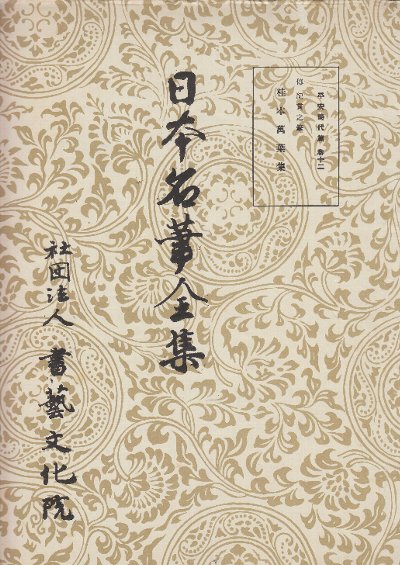 平安時代篇 卷十二
傳紀貫之筆
桂本萬葉集
日本名筆全集
社団法人 書藝文化院